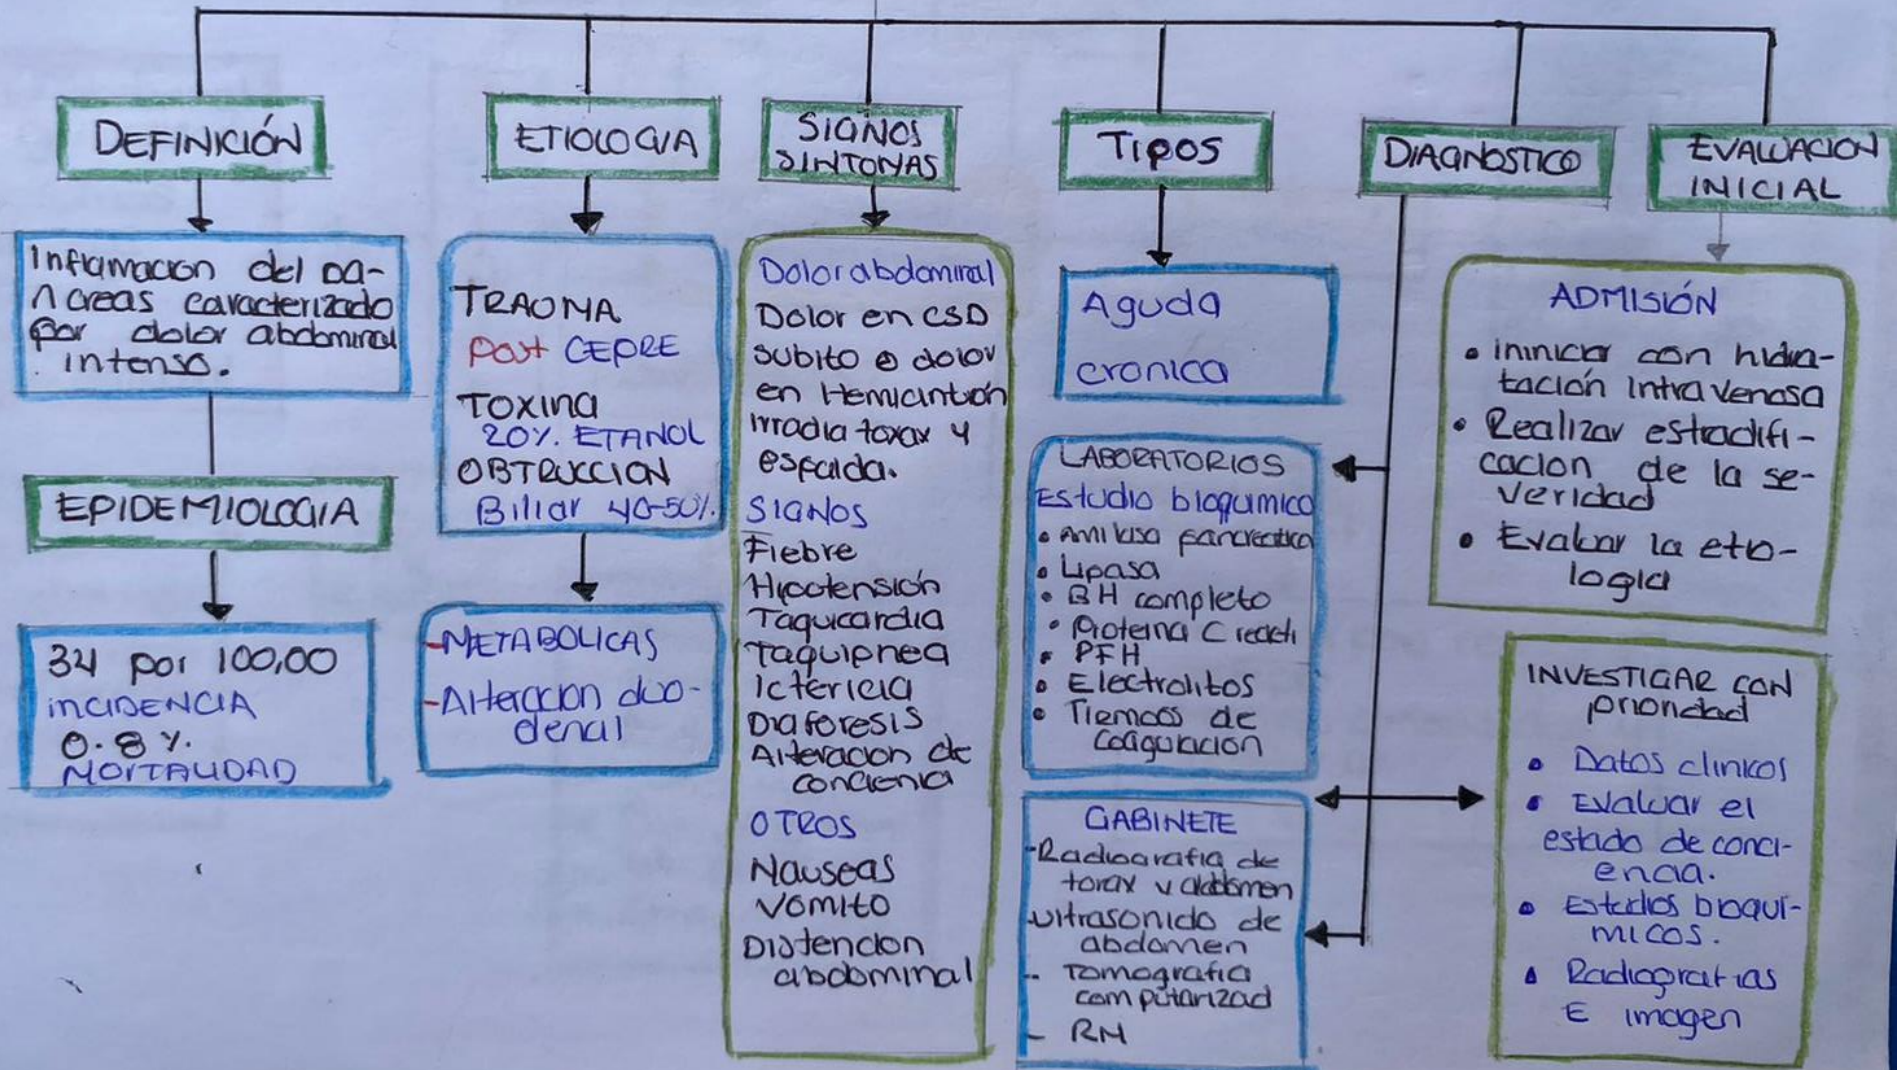 DEFINICIÓN
Inflamacion del pa-
ncreas caracterizado
por dolor abdominal
intenso.
EPIDEMIOLOGIA
34 por 100,00
INCIDENCIA
0.8 %.
MORTALIDAD
ETIOLOGIA
TRAUMA
Post CEPRE
TOXINA
20%. ETANOL
OBTRUCCION
Biliar 40-50%.
-METABOLICAS
-Alteracion duo-
denal
SIGNOS
SINTOMAS
Dolor abdominal
Dolor en CSD
subito o dolor
en Hemicintrón
irradia torax y
espalda.
SIGNOS
Fiebre
Hipotensión
Taquicardia
Taquipnea
Ictericia
Diaforesis
Alteracion de
conciencia
OTROS
Nauseas
Vomito
Distencion
abdominal
TIPOS
Aguda
cronica
DIAGNOSTICO
LABORATORIOS
Estudio bioquimico
• Amilasa pancreatica
• Lipasa
• BH completo
• Proteina C reacti
• PFH
• Electrolitos
• Tiempos de
coagulacion
GABINETE
-Radiografia de
torax y abdomen
-Ultrasonido de
abdomen
- Tomografia
computarizad
- RM
EVALUACION
INICIAL
ADMISIÓN
• ininiciar con hidra-
tación intravenosa
• Realizar estradifi-
cacion de la se-
veridad
• Evaluar la etio-
logia
INVESTIGAR CON
prioridad
• Datos clinicos
• Evaluar el
estado de conci-
encia.
• Estudios bioquí-
micos.
• Radiografias
E imagen